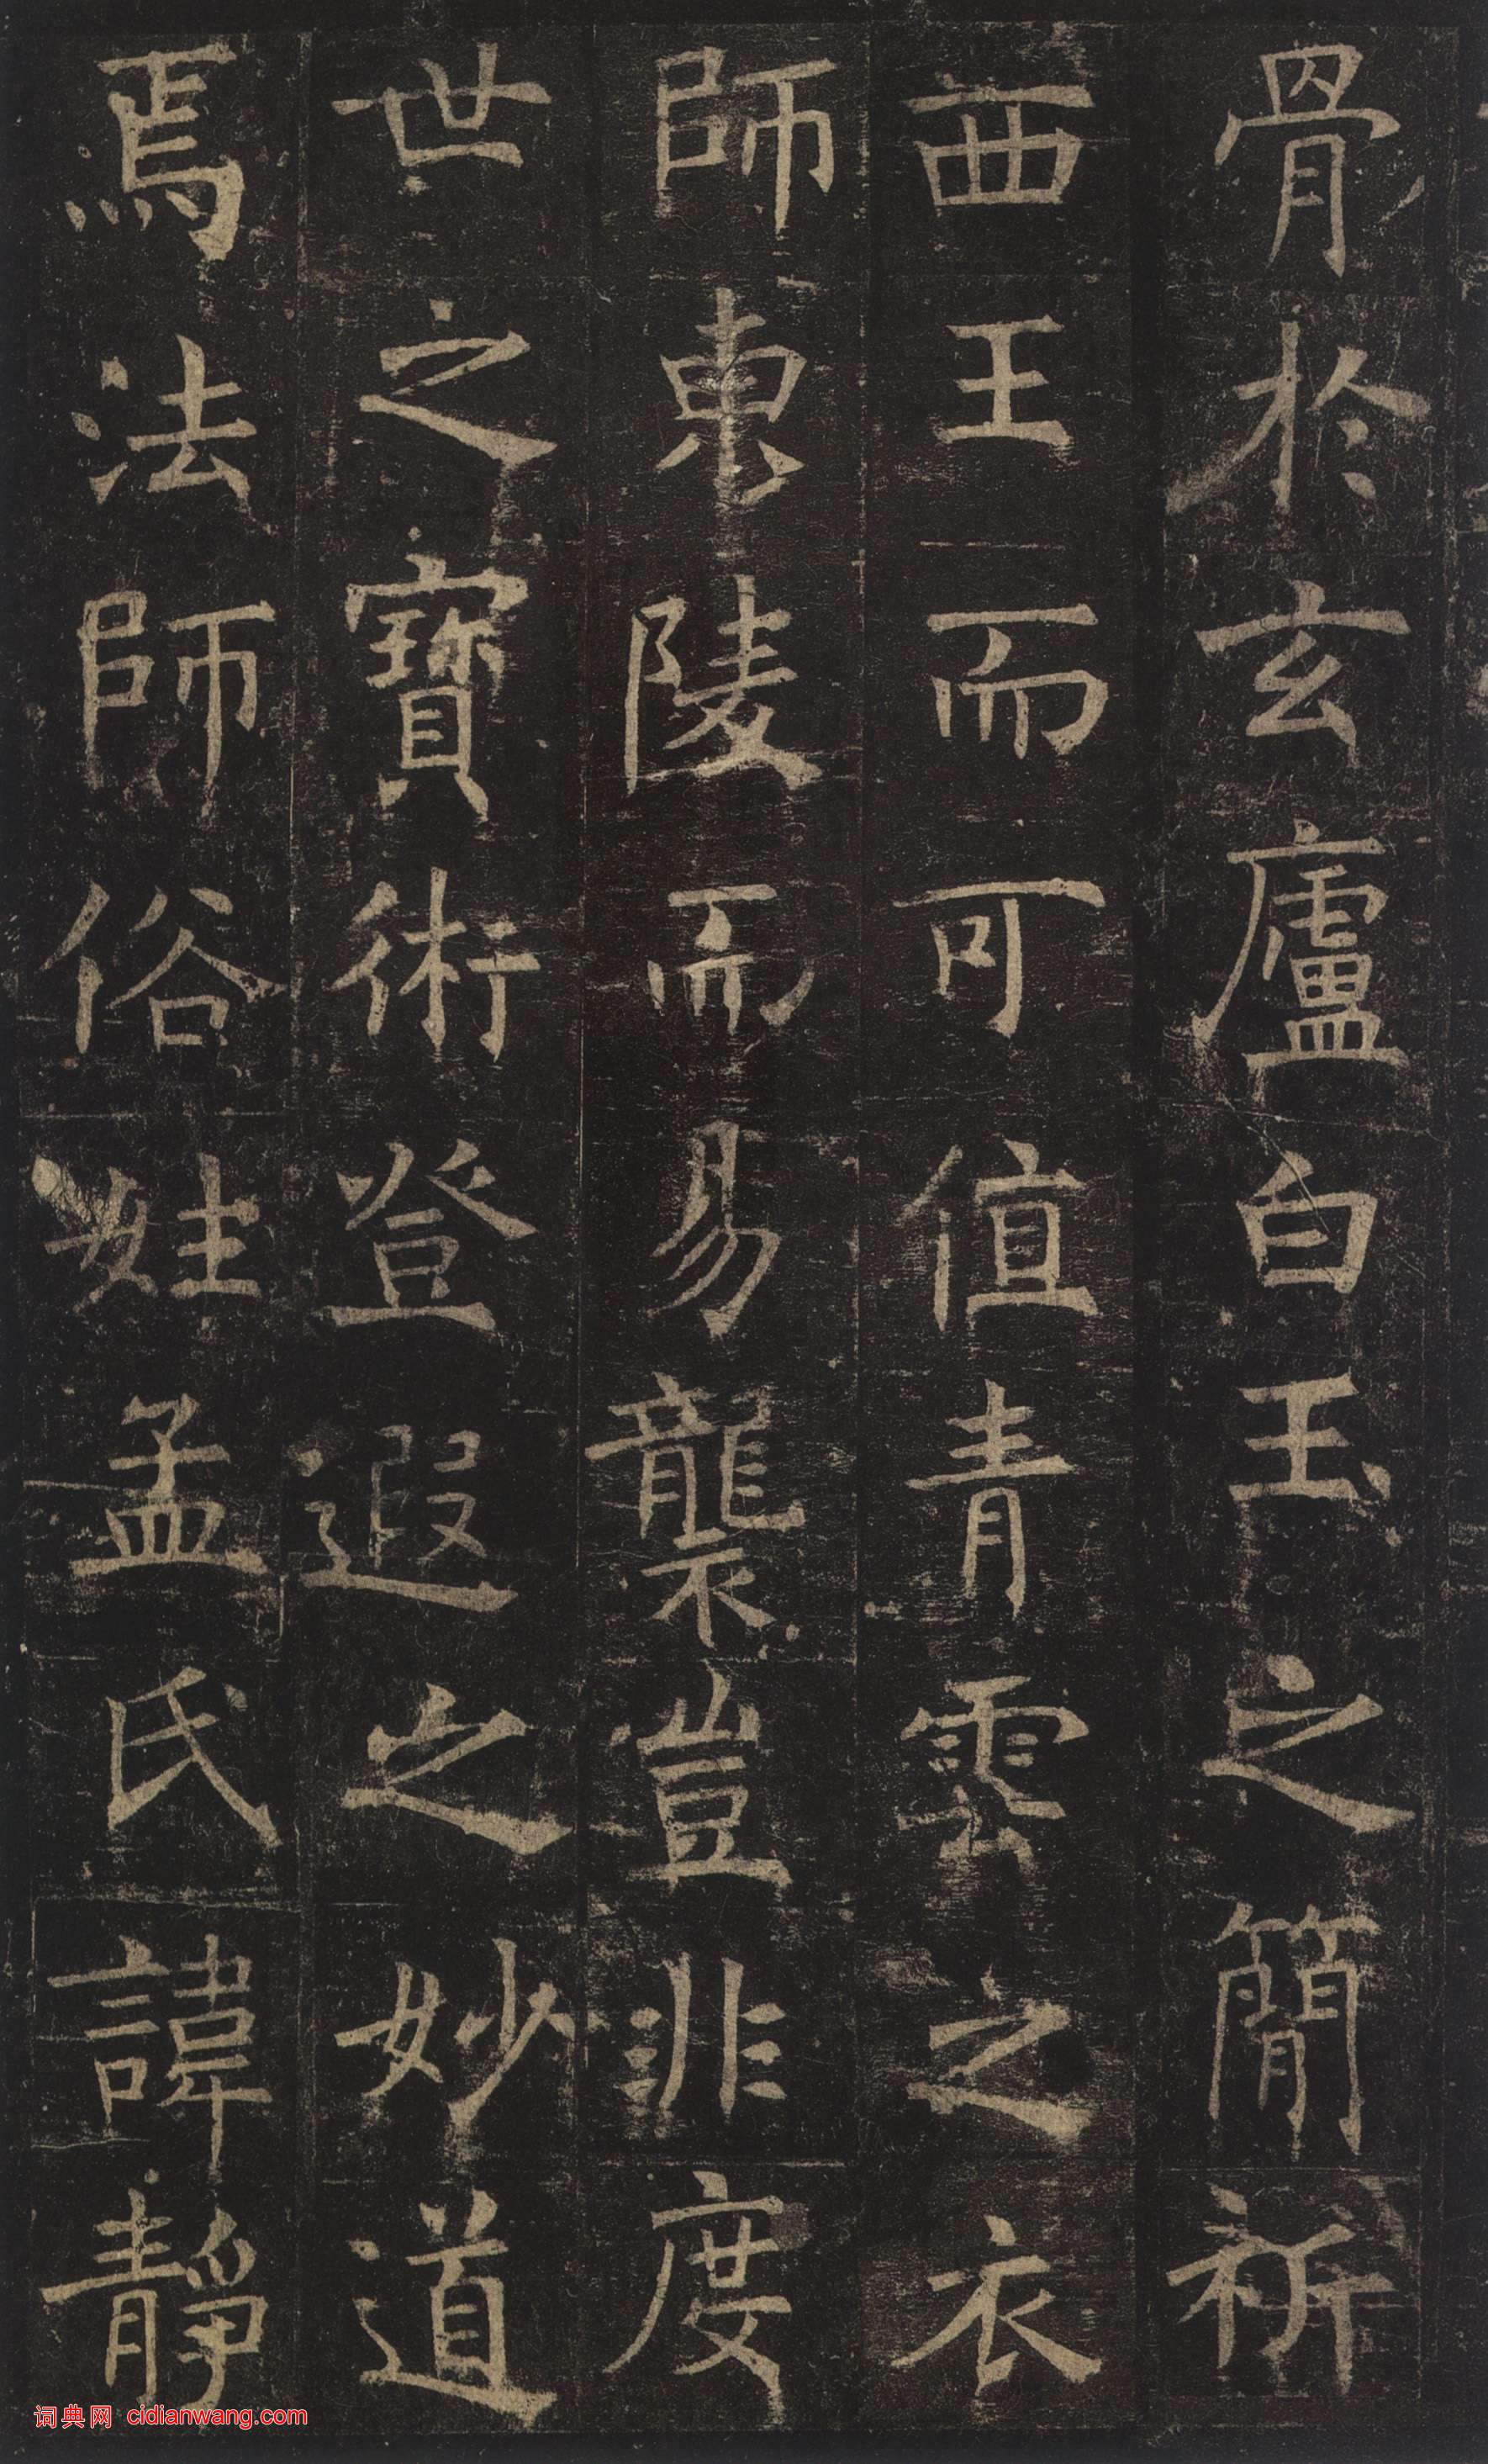 骨於玄廬白玉之簡祈
西王而可值青雲之衣
師東陵而易襲豈非度
世之寶術登遐之妙道
焉法師俗姓孟氏諱靜
词典网 cidianwang.com